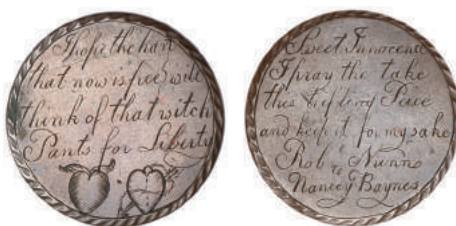 I hope the hart
that now is free will
think of that witch
Pants for Liberty
Sweet Innocence
I pray the take
this trifling Peice
and keep it for my sake
Rob Nunn
to
Nancey Baynes